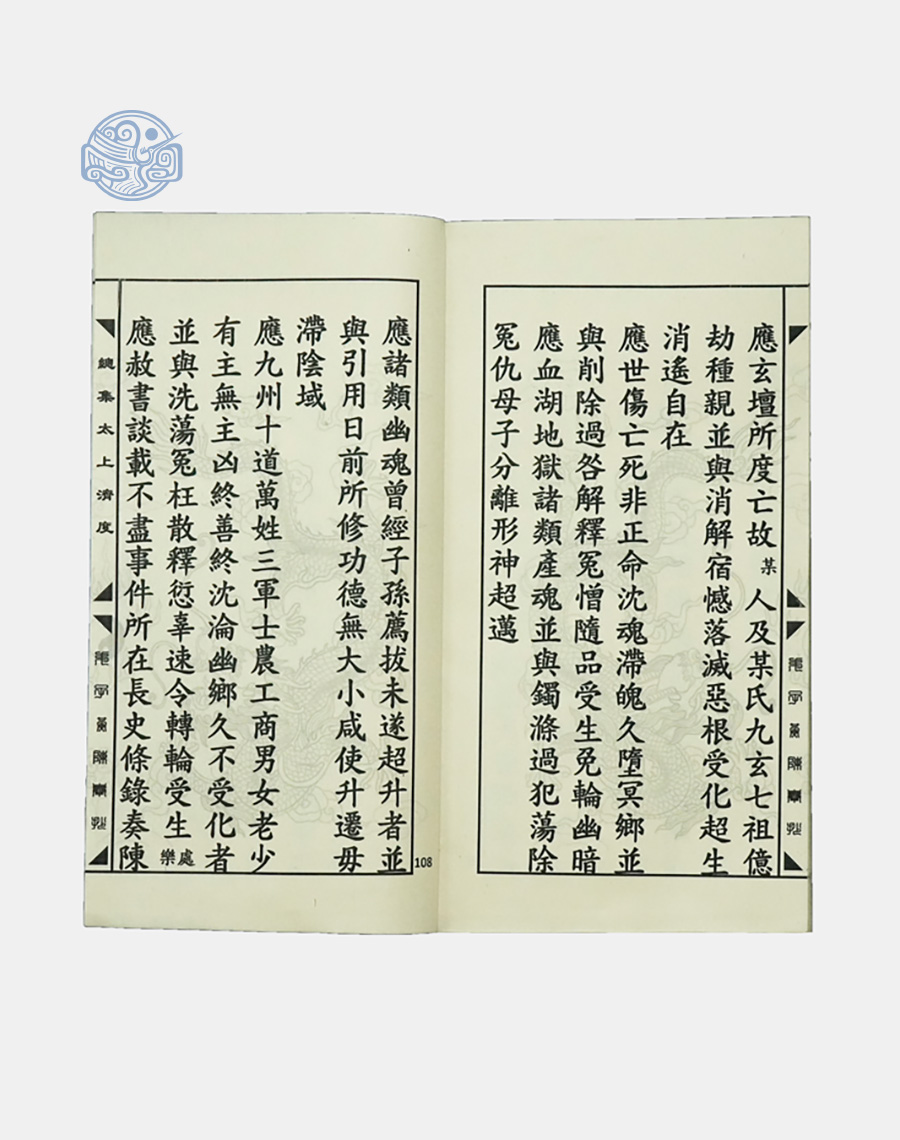 應玄壇所度亡故某人及某氏九玄七祖億
劫種親並與消解宿憾落滅惡根受化超生
消遙自在
應世傷亡死非正命沈魂滯魄久墮冥鄉並
與削除過咎解釋冤憎隨品受生免輪幽暗
應血湖地獄諸類產魂並與鐲滌過犯蕩除
冤仇母子分離形神超邁
應諸類幽魂曾經子孫薦拔未遂超升者並
與引用日前所修功德無大小咸使升遷毋
滯陰域
應九州十道萬姓三軍士農工商男女老少
有主無主凶終善終沈淪幽鄉久不受化者
並與洗蕩冤枉散釋愆辜速令轉輪受生處樂
應赦書談載不盡事件所在長史條錄奏陳
總集太上濟度
108